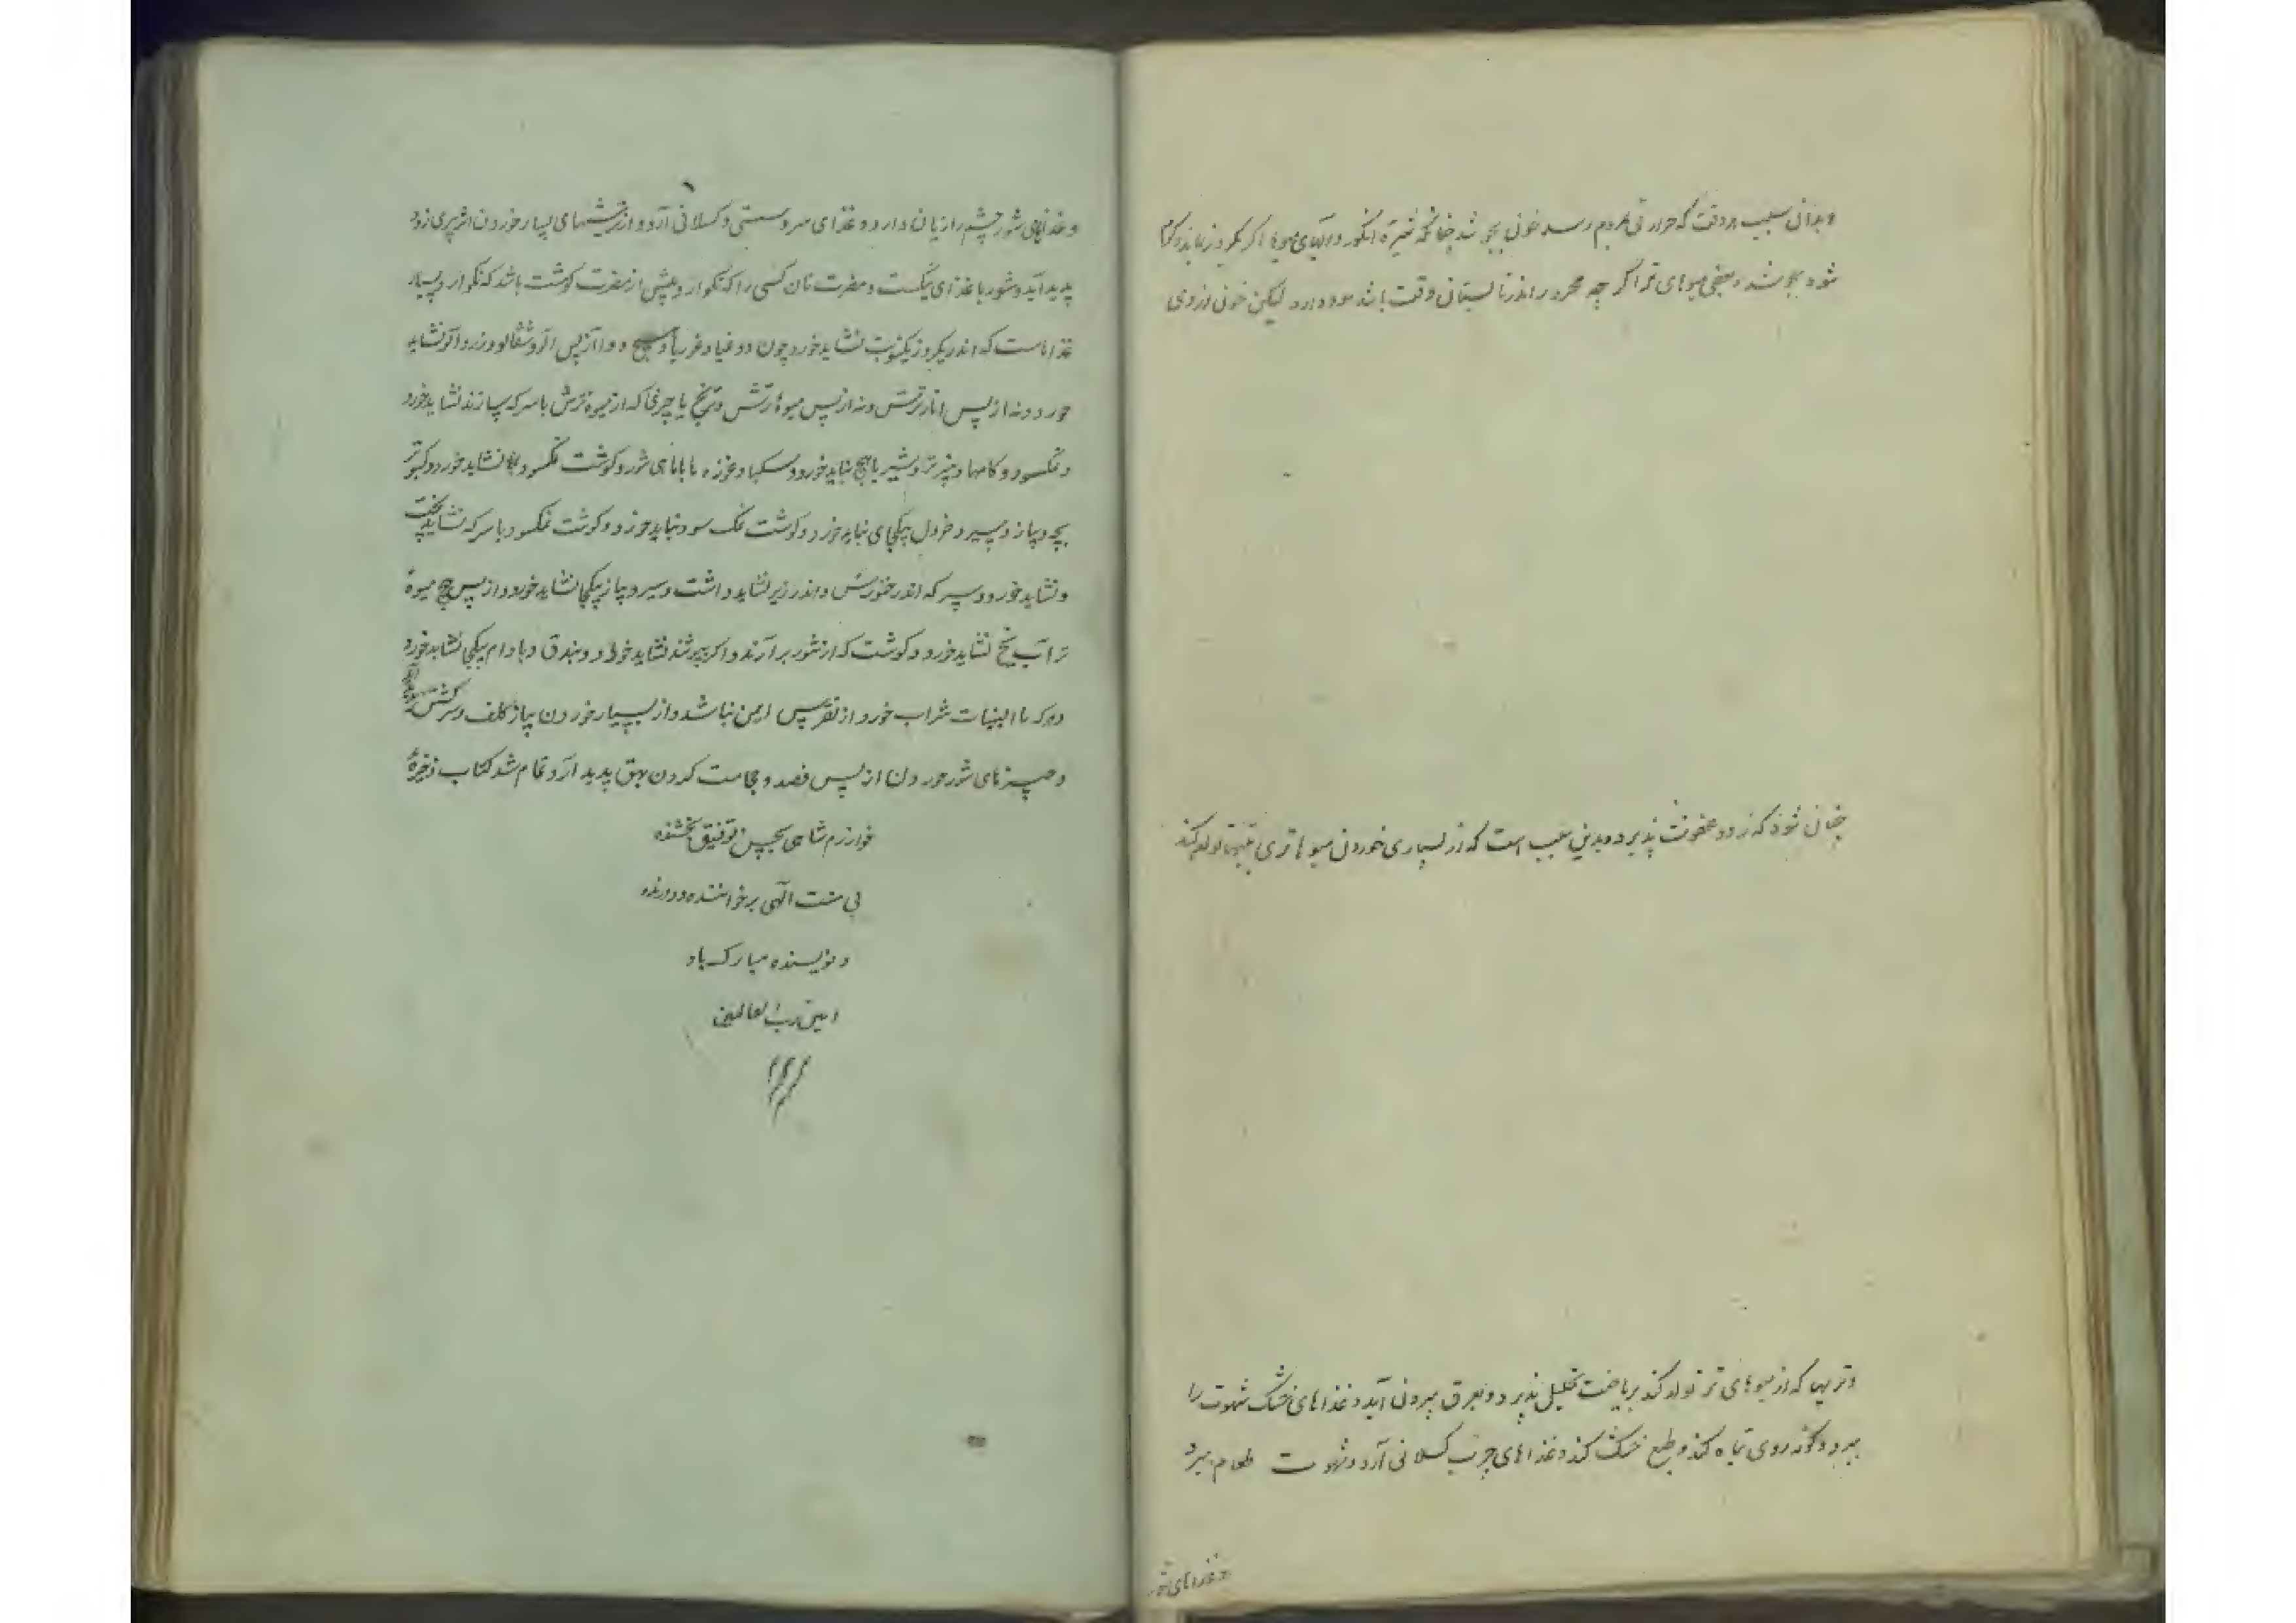 وبدانی سبب هر وقت که حرارتی بمردم رسد خونی بجوشد چنانکه شیره انگور و آبهای میوها اگر یکروز نماند گرم
شود بجوشد و بعضی میوهای تر اگر چه محرور را اندر تابستان وقت باشد سود دارد لیکن خونی از وی
چنان شود که زود عفونت پذیرد و بدین سبب است که از بسیاری خوردن میوها تری تبها تولد کند
و تریها که از میوهای تر تولد کند بریاضت تحلیل پذیرد و بعرق بیرون آید و غذاهای خشک شهوت را
ببرد و گونه روی تباه کند و طبع خشک کند و غذاهای چرب کسلانی آرد و شهوت طعام ببرد
و غذاهای شور
و غذاهای شور چشم را زیان دارد و غذای سرد سستی و کسلانی آرد و از ترشیهای بسیار خوردن اثر پیری زود
پدید آید و شوربا غذای نیکست و مضرت نان کسی را که نگوارد بیش از مضرت گوشت باشد که نگوارد و بسیار
غذاهاست که اندر یکروز یکنوبت نشاید خورد چون دوغبا و غوربا و هیچ دوا از پس آلو و شفتالو و زردآلو نشاید
خورد و نه از پس انار ترش و نه از پس میوه ترش و ترنج یا چیزی که از میوه ترش با سرکه سازند نشاید خورد
و نمکسود و کامها و پنیر تر و شیر با هیچ نباید خورد و سکبا و غوره با با ماهی شور و گوشت نمکسود نشاید خورد و کبوتر
بچه و پیاز و سیر و خردل بیکجای نباید خورد و گوشت نمک سود نباید خورد و گوشت نمکسود با سرکه نشاید پخت
و نشاید خورد و سرکه اندر خنور مس و اندر زیر نشاید داشت و سیر و پیاز بیکجا نشاید خورد و از پس هیچ میوه
تر آب یخ نشاید خورد و گوشت که از تنور برآرند و اگر بپوشند نشاید خورد و فندق و بادام بیکجا نشاید خورد
و هرکه با البنیات شراب خورد از نقرس ایمن نباشد و از بسیار خوردن پیاز کلف و سرگشتن
و چیزهای شور خوردن از پس فصد و حجامت کردن بهق پدید آرد تمام شد کتاب ذخیره
خوارزم شاهی بحسن توفیق بخشنده
بی منت الهی بر خواننده و دارنده
و نویسنده مبارک باد
امین رب العالمین